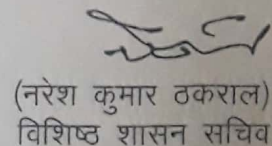 (नरेश कुमार ठकराल)
विशिष्ठ शासन सचिव